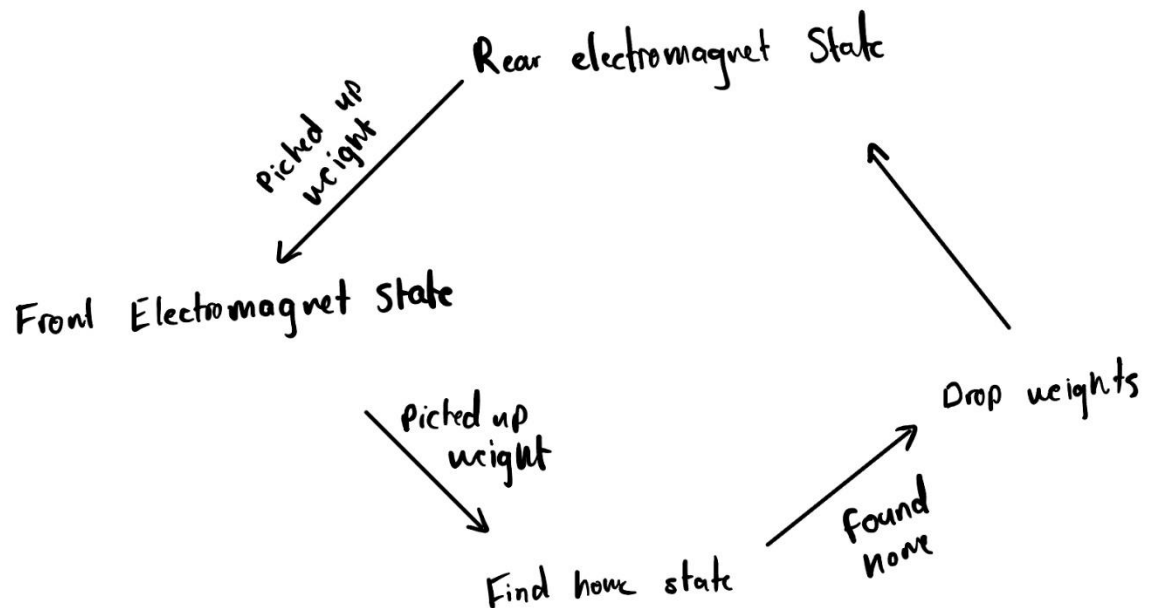 Rear electromagnet State
Picked up
weight
Front Electromagnet state
Picked up
weight
Drop weights
Found
home
Find home state